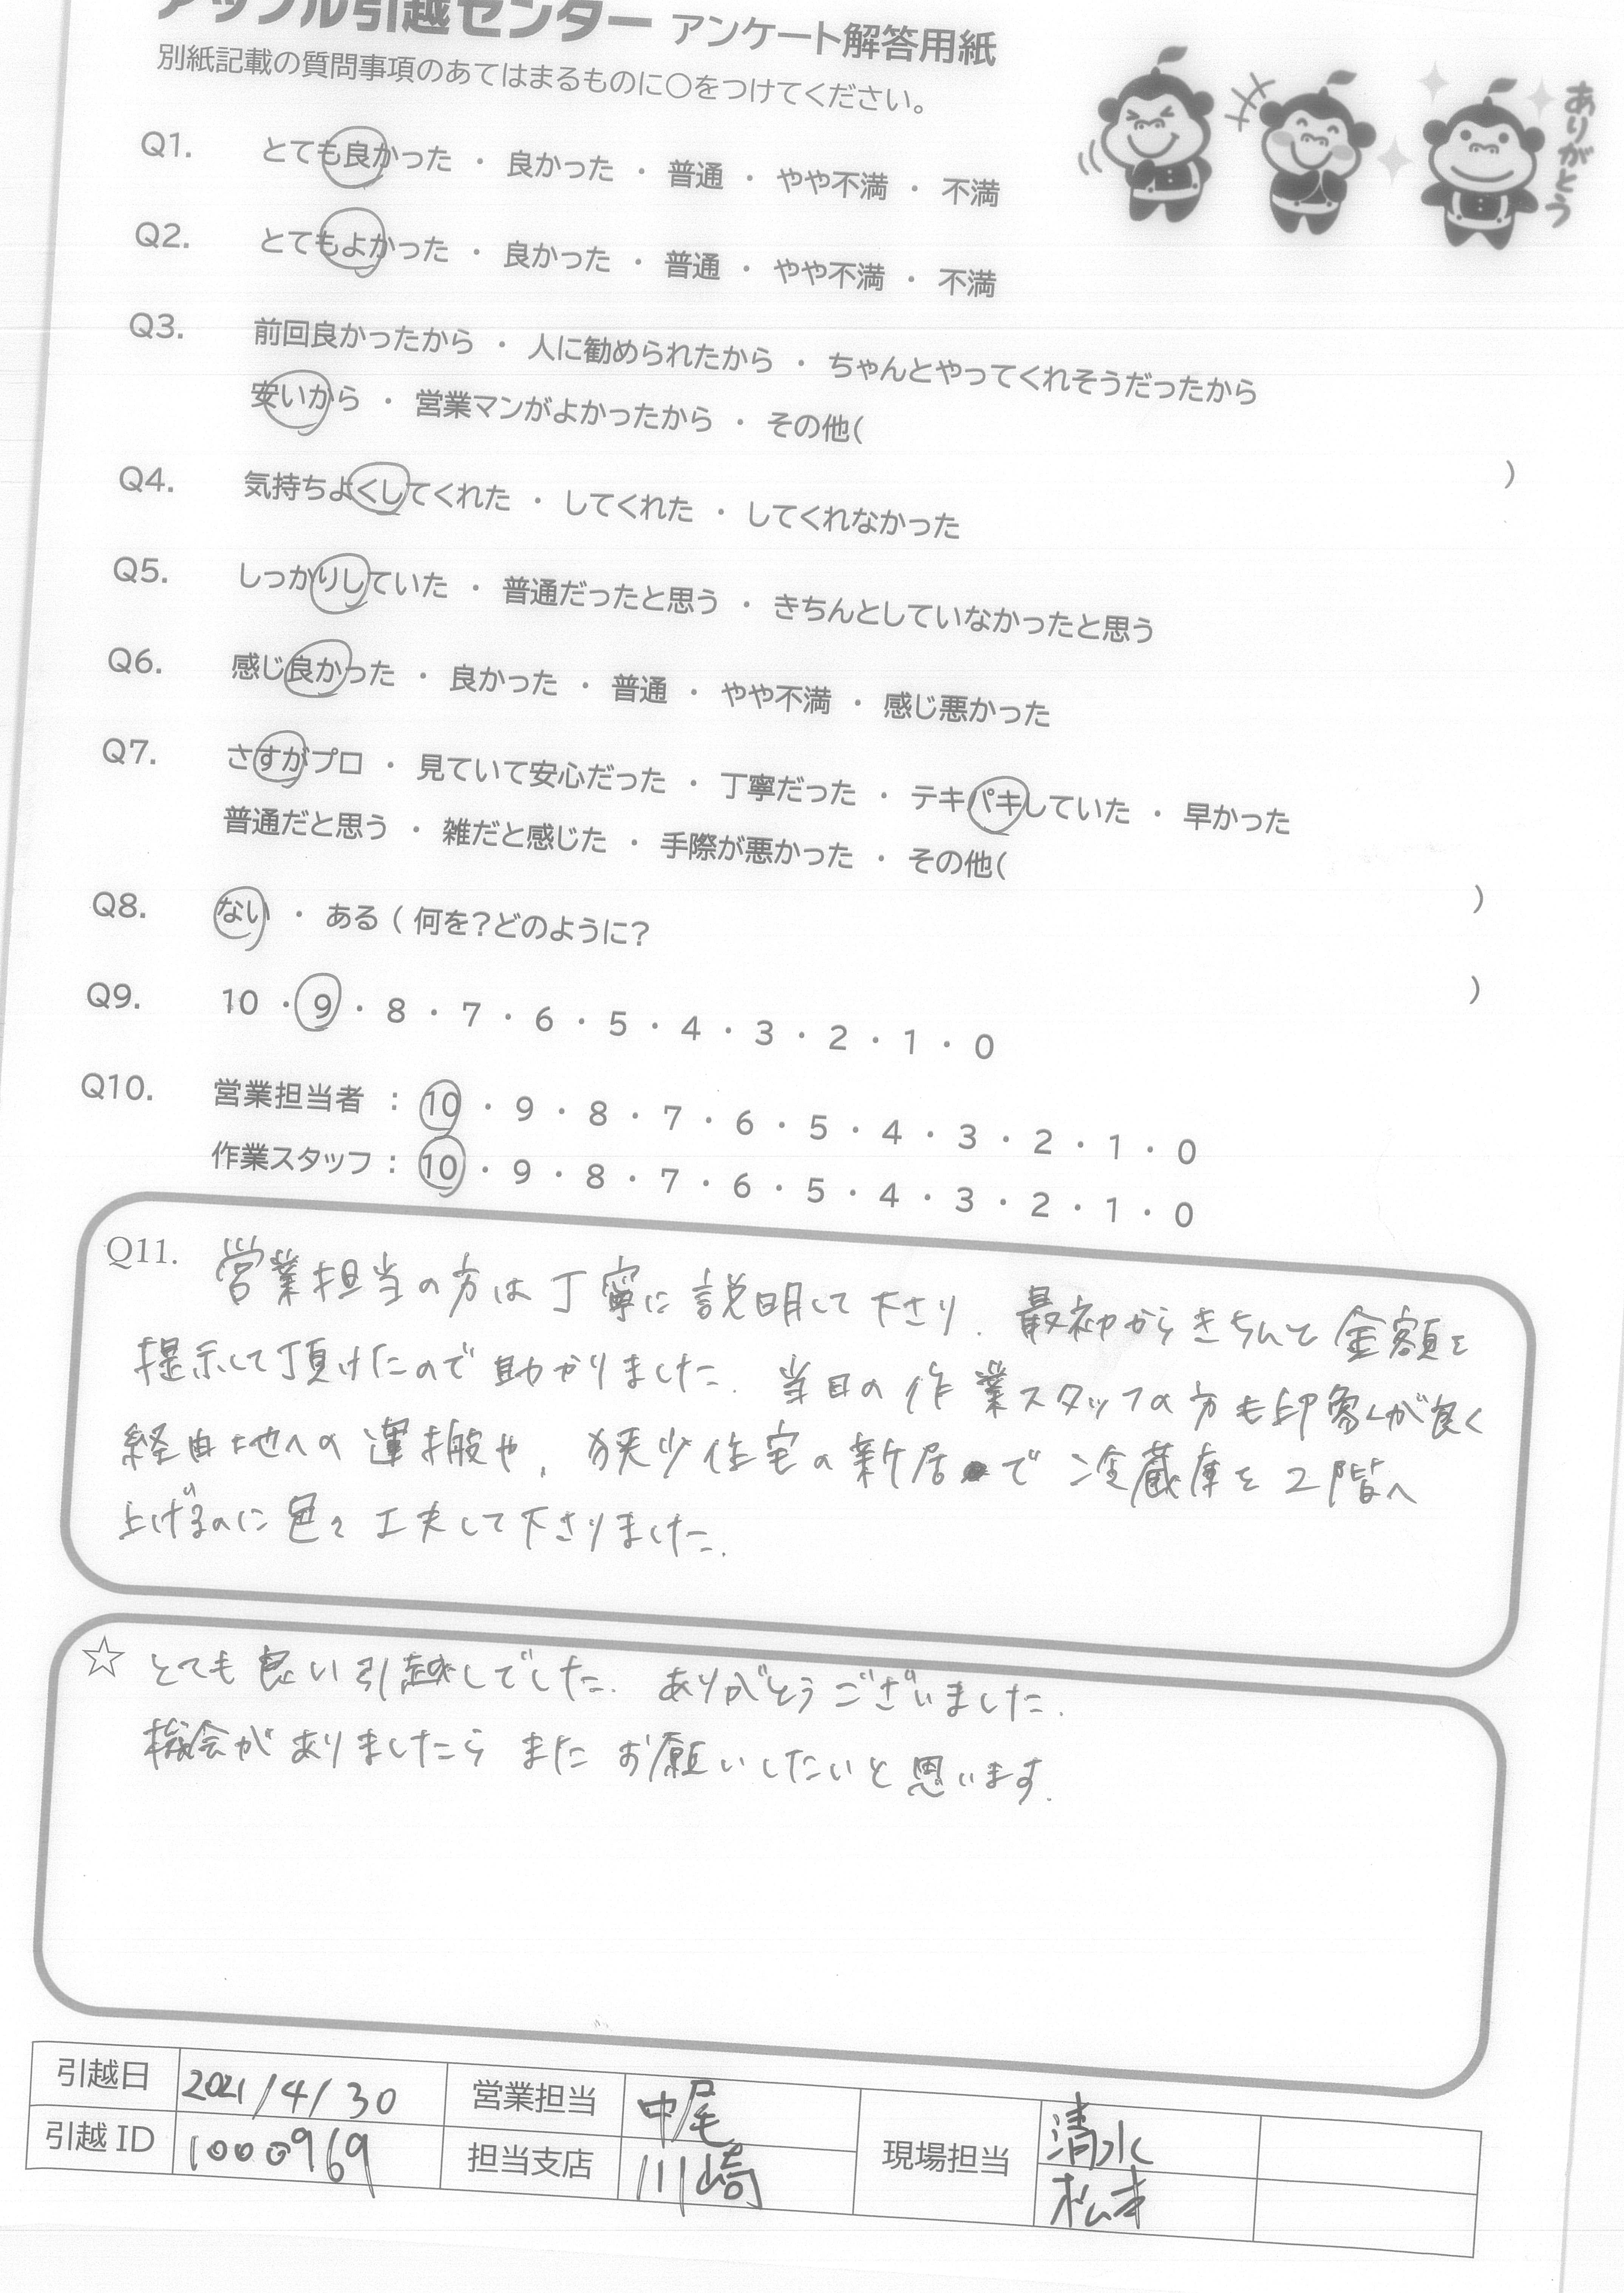 アップル引越センター アンケート解答用紙
別紙記載の質問事項のあてはまるものに〇をつけてください。
ありがとう
Q1. とても良かった ・ 良かった ・ 普通 ・ やや不満 ・ 不満
Q2. とてもよかった ・ 良かった ・ 普通 ・ やや不満 ・ 不満
Q3. 前回良かったから ・ 人に勧められたから ・ ちゃんとやってくれそうだったから
安いから ・ 営業マンがよかったから ・ その他( )
Q4. 気持ちよくしてくれた ・ してくれた ・ してくれなかった
Q5. しっかりしていた ・ 普通だったと思う ・ きちんとしていなかったと思う
Q6. 感じ良かった ・ 良かった ・ 普通 ・ やや不満 ・ 感じ悪かった
Q7. さすがプロ ・ 見ていて安心だった ・ 丁寧だった ・ テキパキしていた ・ 早かった
普通だと思う ・ 雑だと感じた ・ 手際が悪かった ・ その他( )
Q8. ない ・ ある ( 何を?どのように? )
Q9. 10 ・ 9 ・ 8 ・ 7 ・ 6 ・ 5 ・ 4 ・ 3 ・ 2 ・ 1 ・ 0
Q10. 営業担当者 : 10 ・ 9 ・ 8 ・ 7 ・ 6 ・ 5 ・ 4 ・ 3 ・ 2 ・ 1 ・ 0
作業スタッフ : 10 ・ 9 ・ 8 ・ 7 ・ 6 ・ 5 ・ 4 ・ 3 ・ 2 ・ 1 ・ 0
Q11. 営業担当の方は丁寧に説明して下さり、最初からきちんと金額を
提示して頂けたので助かりました。当日の作業スタッフの方も印象が良く
経由地への運搬や、狭少住宅の新居で冷蔵庫を2階へ
上げるのに色々工夫して下さりました。
☆ とても良い引越しでした。ありがとうございました。
機会がありましたらまたお願いしたいと思います。
引越日 2021/4/30 営業担当 中尾 現場担当 清水
引越ID 1000969 担当支店 川崎 松本